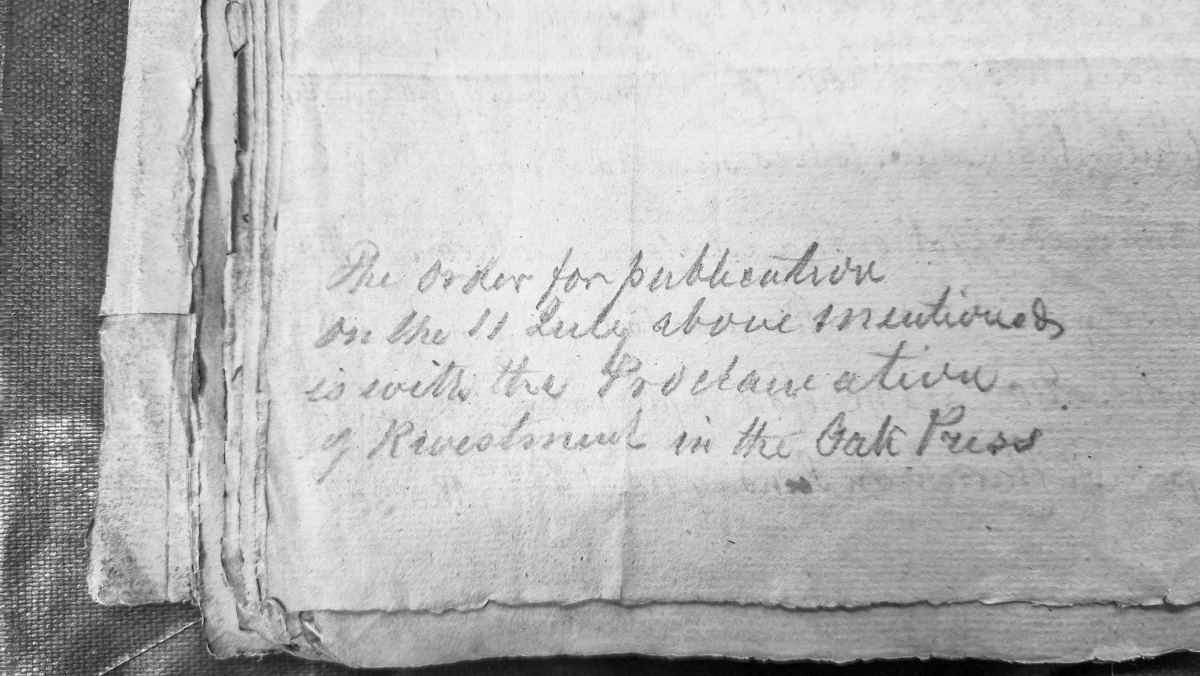 The Order for publication
on the 11 July above mentioned
is with the Proclamation
of Revestment in the Oak Press